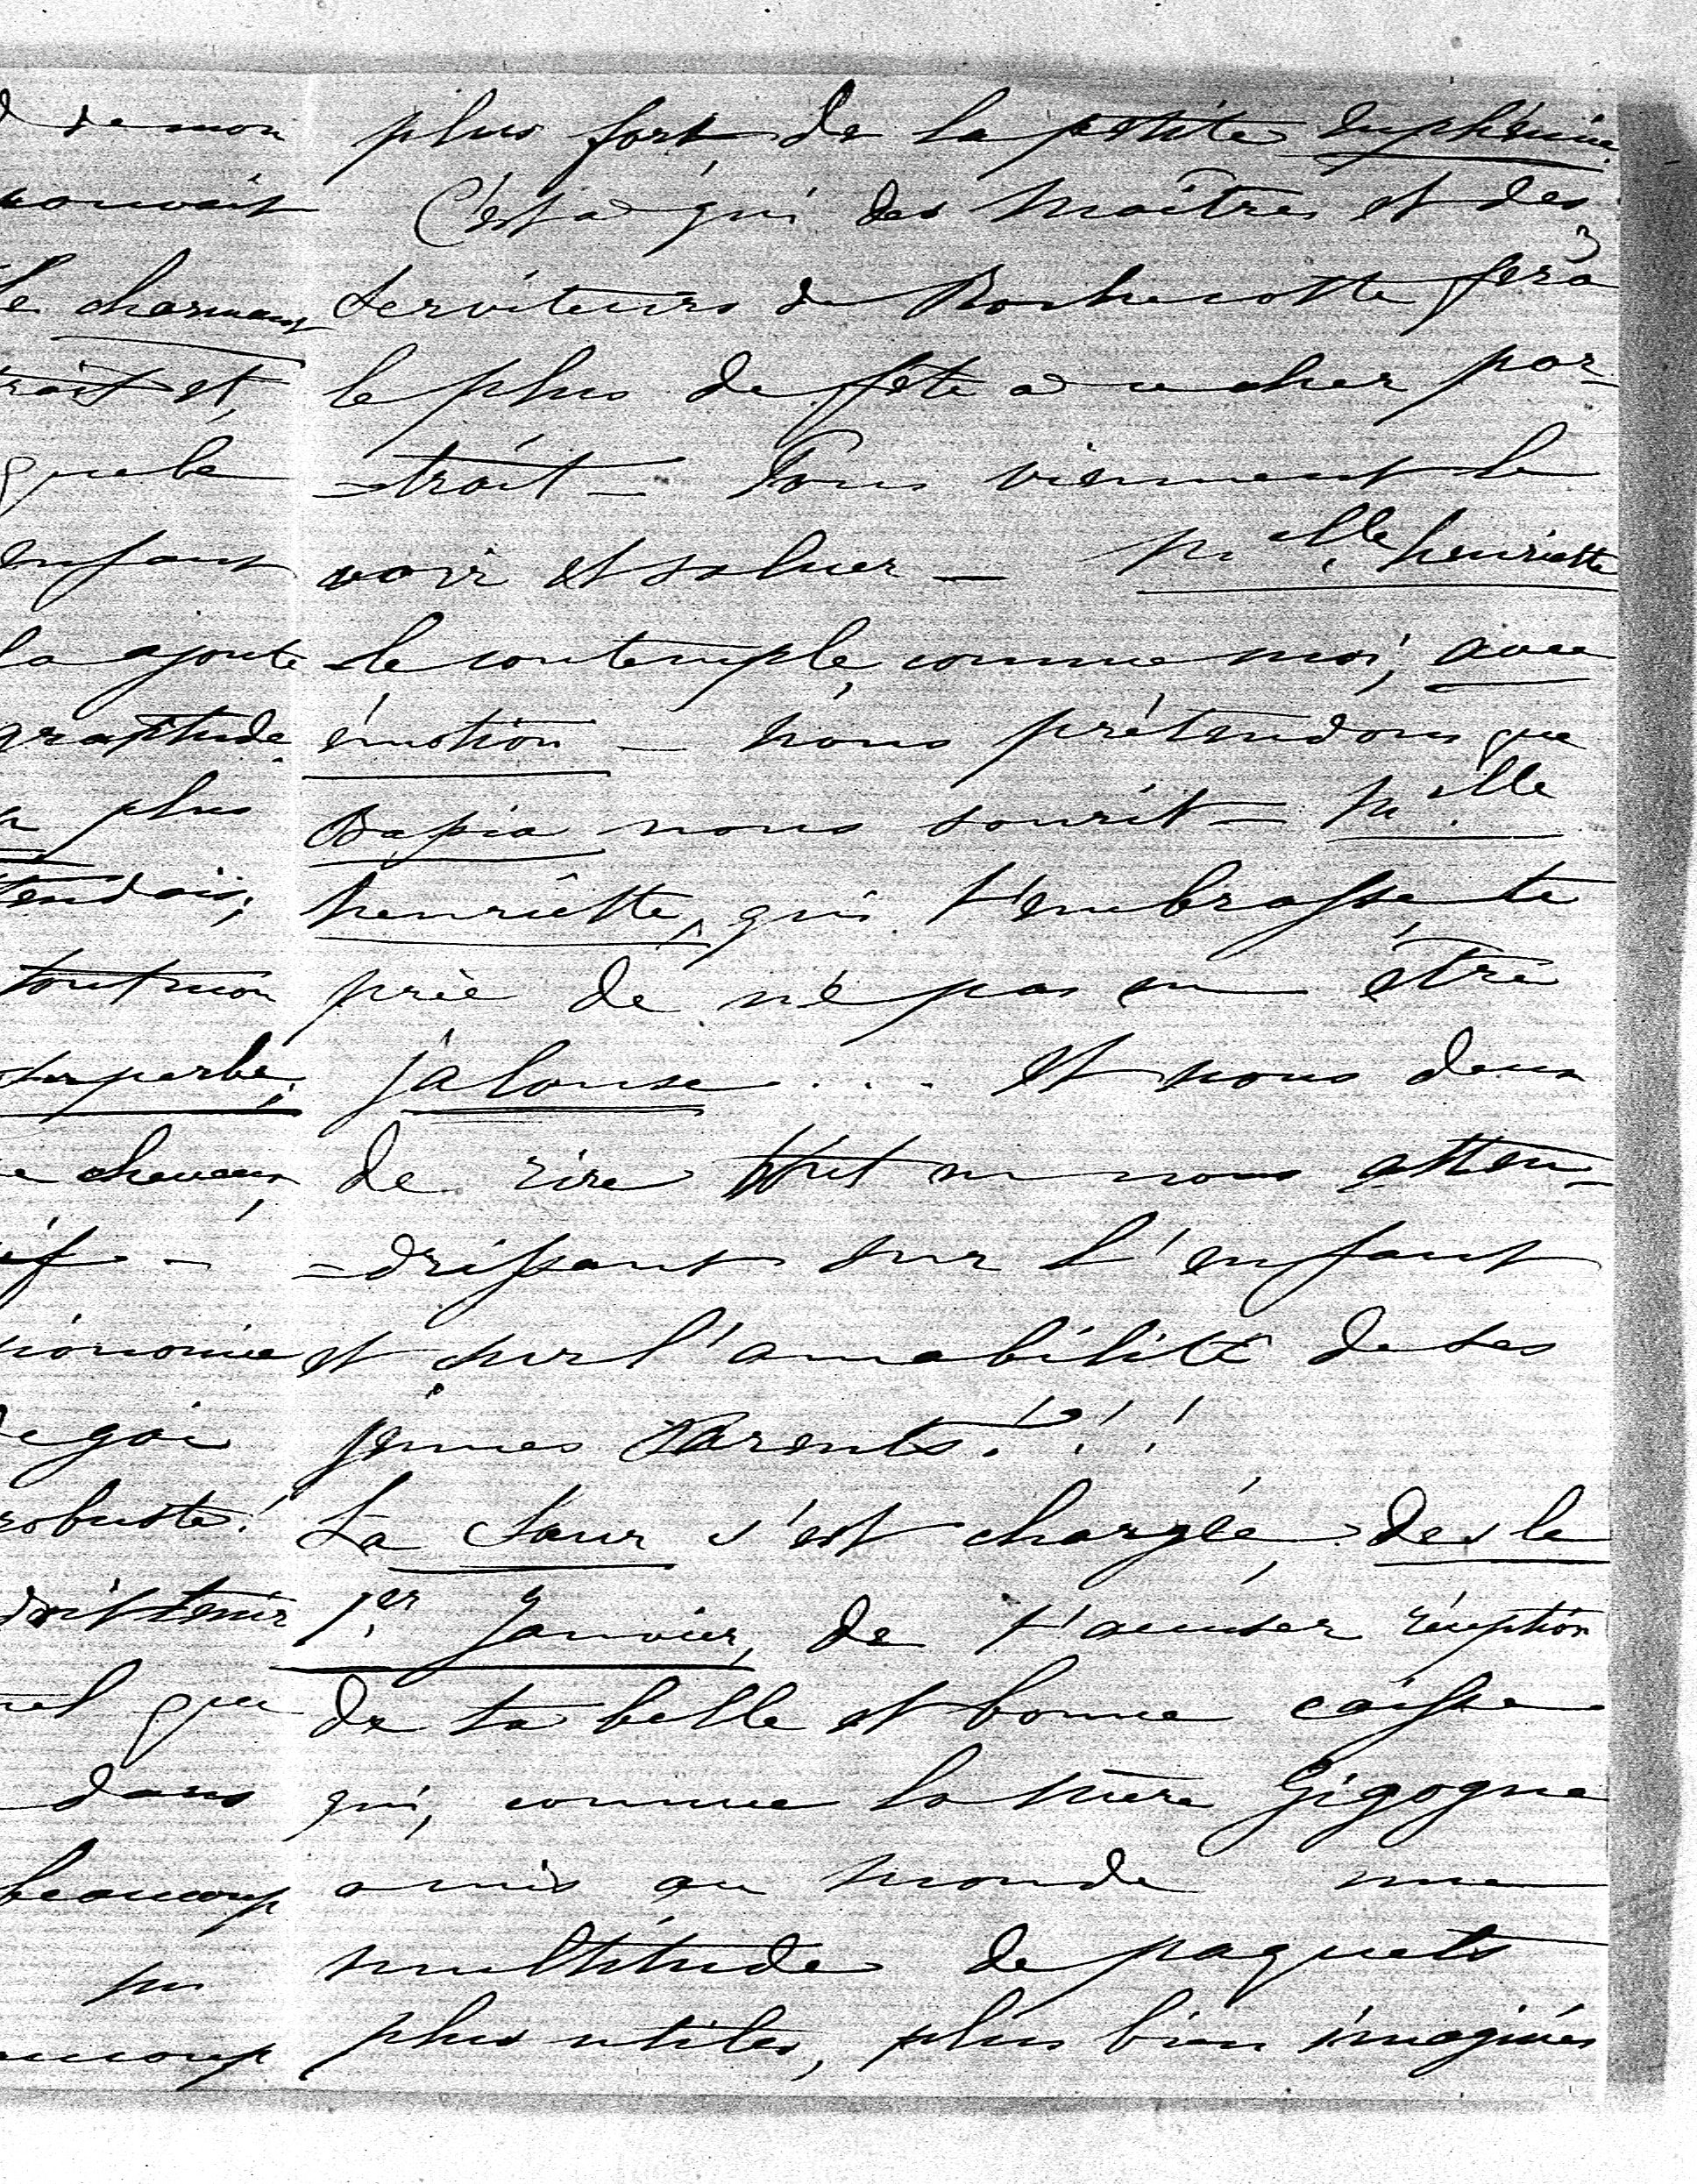 de mon
pouvait
le charmant
trait et
que le
enfant
la ajoute
gratitude
plus
tendais,
tout mon
superbe,
cheveux,
if -
sionomie
gai
robuste!
doit tenir
que
dans
beaucoup
plus fort de la petite euphémie.
C'est a qui des Maîtres et des
Serviteurs de Rochecotte fera
le plus de fête a ce cher por-
-trait - Tous viennent le
voir et saluer - Melle henriette
le contemple, comme moi, avec
émotion - nous prétendons que
Bapia nous sourit - Melle
henriette, qui t'embrasse te
prie de n'e pas en être
jalouse . . . Et nous deux
de rire tout en nous atten-
-drissant sur l'enfant
et sur l'amabilité de ses
jeunes Parents. ! ! !
La Sœur s'est chargée, des le
1er Janvier, de t'accuser réception
de ta belle et bonne caisse
qui, comme la mère Gigogne
a mis au monde une
multitude de paquets
plus utiles, plus bien imaginés